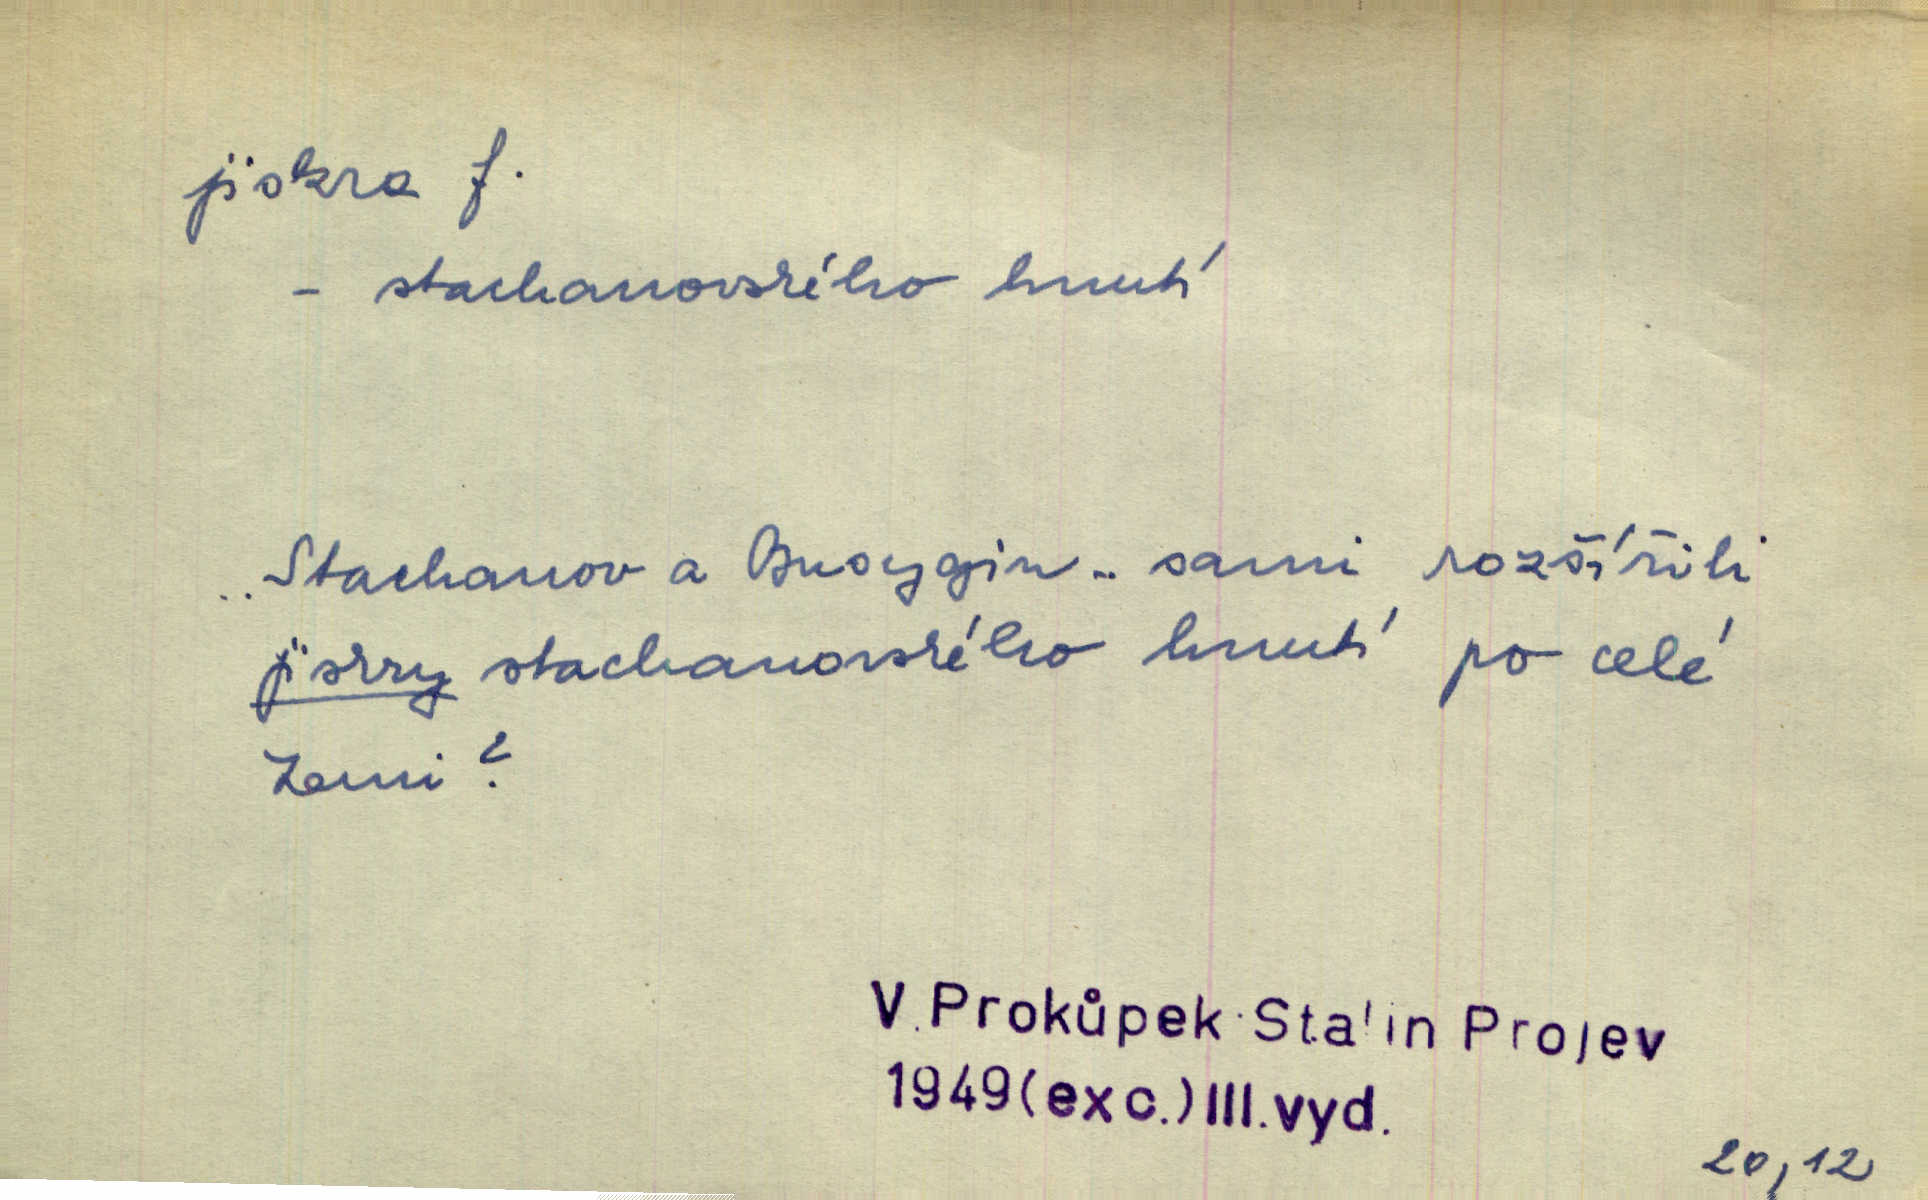 jiskra f.
- stachanovského hnutí
..Stachanov a Busygin.. sami rozšířili
jiskry stachanovského hnutí po celé
zemi?
V. Prokůpek Stalin Projev
1949(exc.) III. vyd.
20,12